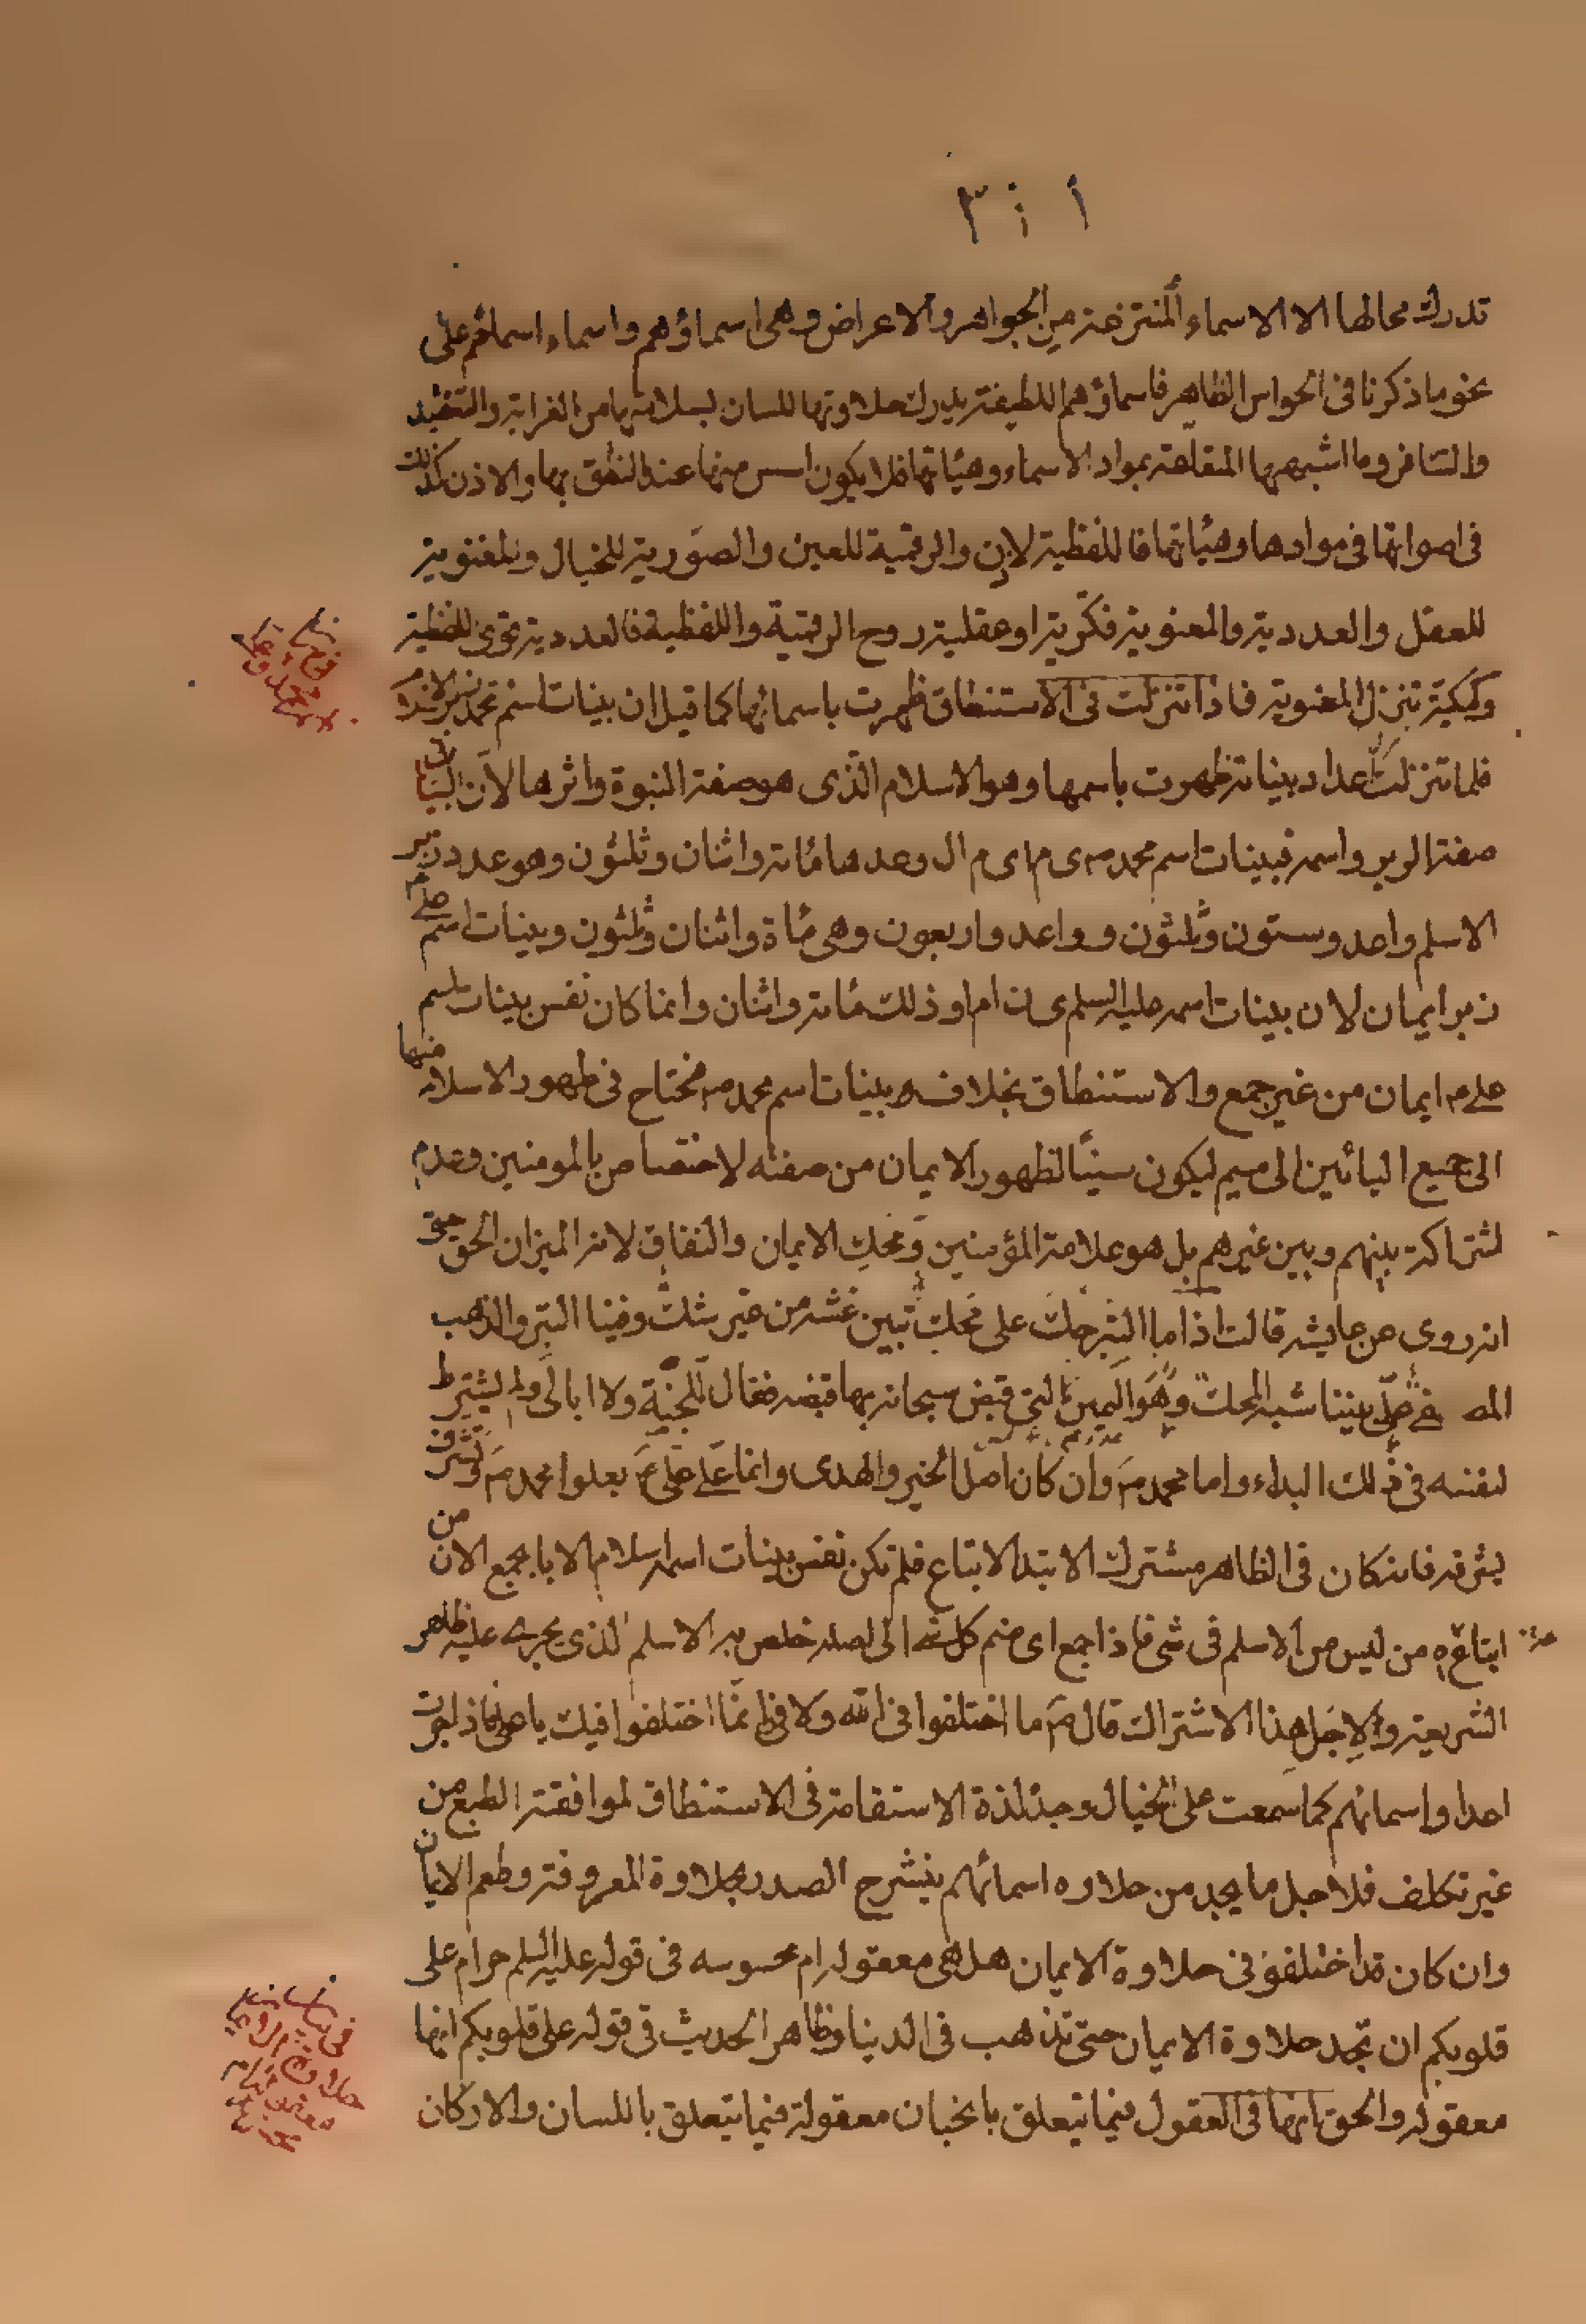 تدرك محالها الا الاسماء المنتزعة من الجواهر والاعراض وهى اسماؤهم واسماء اسمائهم على
نحو ما ذكرنا فى الحواس الظاهر فاسماؤهم اللطيفة يدرك حلاوتها اللسان لسلامتها من الغرابة والتعقيد
والتنافر وما اشبهها المتعلقة بمواد الاسماء وهيئاتها فلا يكون اسس منها عند النطق بها والاذن كذلك
فى اصواتها فى موادها وهيئاتها فاللفظية للاذن والرقمية للعين والصورية للخيال والمعنوية
للعقل والعددية والمعنوية فكرية او عقلية روح الرقمية واللفظية فالعددية تقوى اللفظية
وكيفية تنزل المعنوية فاذا تنزلت فى الاستنطاق ظهرت باسمائها كما قيل ان بينات اسم محمد
فلما تنزلت اعداد بيناته ظهرت باسمها وهو الاسلام الذى هو صفة النبوة واثرها لان البينات
صفة الزبر واسمه فبينات اسم محمد ص ى م ا ى م ا ل وعدها مائة واثنان وثلثون وهو عدد زبر
الاسلم واحد وستون وثلثون وواحد واربعون وهى مأة واثنان وثلثون وبينات اسم على م
زبر ايمان لان بينات اسمه عليه السلم ى ن ا م ا وذلك مائة واثنان وانما كان نفس بينات اسم
على م ايمان من غير جمع والاستنطاق بخلاف بينات اسم محمد ص محتاج فى ظهور الاسلام منها
الى جميع اليائين الى ميم ليكون سينًا لظهور الايمان من صفته لاختصاص بالمومنين وعدم
اشتراكه بينهم وبين غيرهم بل هو علامة المؤمنين ومحك الايمان والنفاق لانه الميزان الحق حتى
انه روى عن عايشه قالت اذا ما التبر حك على محك تبين غشه من غير شك وفينا التبر والذهب
المصفى على بيننا شبه المحك وهو اليمين التى قبض سبحانه بها قبضه فقال للجنة ولا ابالى ولم يشترط
لنفسه فى ذلك البداء واما محمد ص وان كان اصل الخير والهدى وانما على م بعلوا محمد ص وتشرف
بشرفه فانه كان فى الظاهر مشترك الابتدا الاتباع فلم تكن نفس بينات اسمه اسلام الا بالجمع لان من
اتباعه من ليس من الاسلم فى شئ فاذا جمع اى ضم كل شئ الى اصله خلص به الاسلم الذى يجرى عليه ظاهر
الشريعة ولاجل هذا الاشتراك قال ص ما اختلفوا فى الله ولا فى وانما اختلفوا فيك يا على فاذا جرت
احدا واسمائهم كما سمعت على الخيال وجد لذة الاستقامة فى الاستنطاق لموافقة الطبع من
غير تكلف فلاجل ما يجد من حلاوه اسمائهم ينشرح الصدر بحلاوة المعروفة وطعم الايمان
وان كان قد اختلفوا فى حلاوة الايمان هل هى معقوله ام محسوسه فى قوله عليه السلم حرام على
قلوبكم ان تجد حلاوة الايمان حتى تذهب فى الدنيا وظاهر الحديث فى قوله على قلوبكم انها
معقوله والحق انها فى العقول فيما يتعلق بالجنان معقولة فيما يتعلق باللسان والاركان